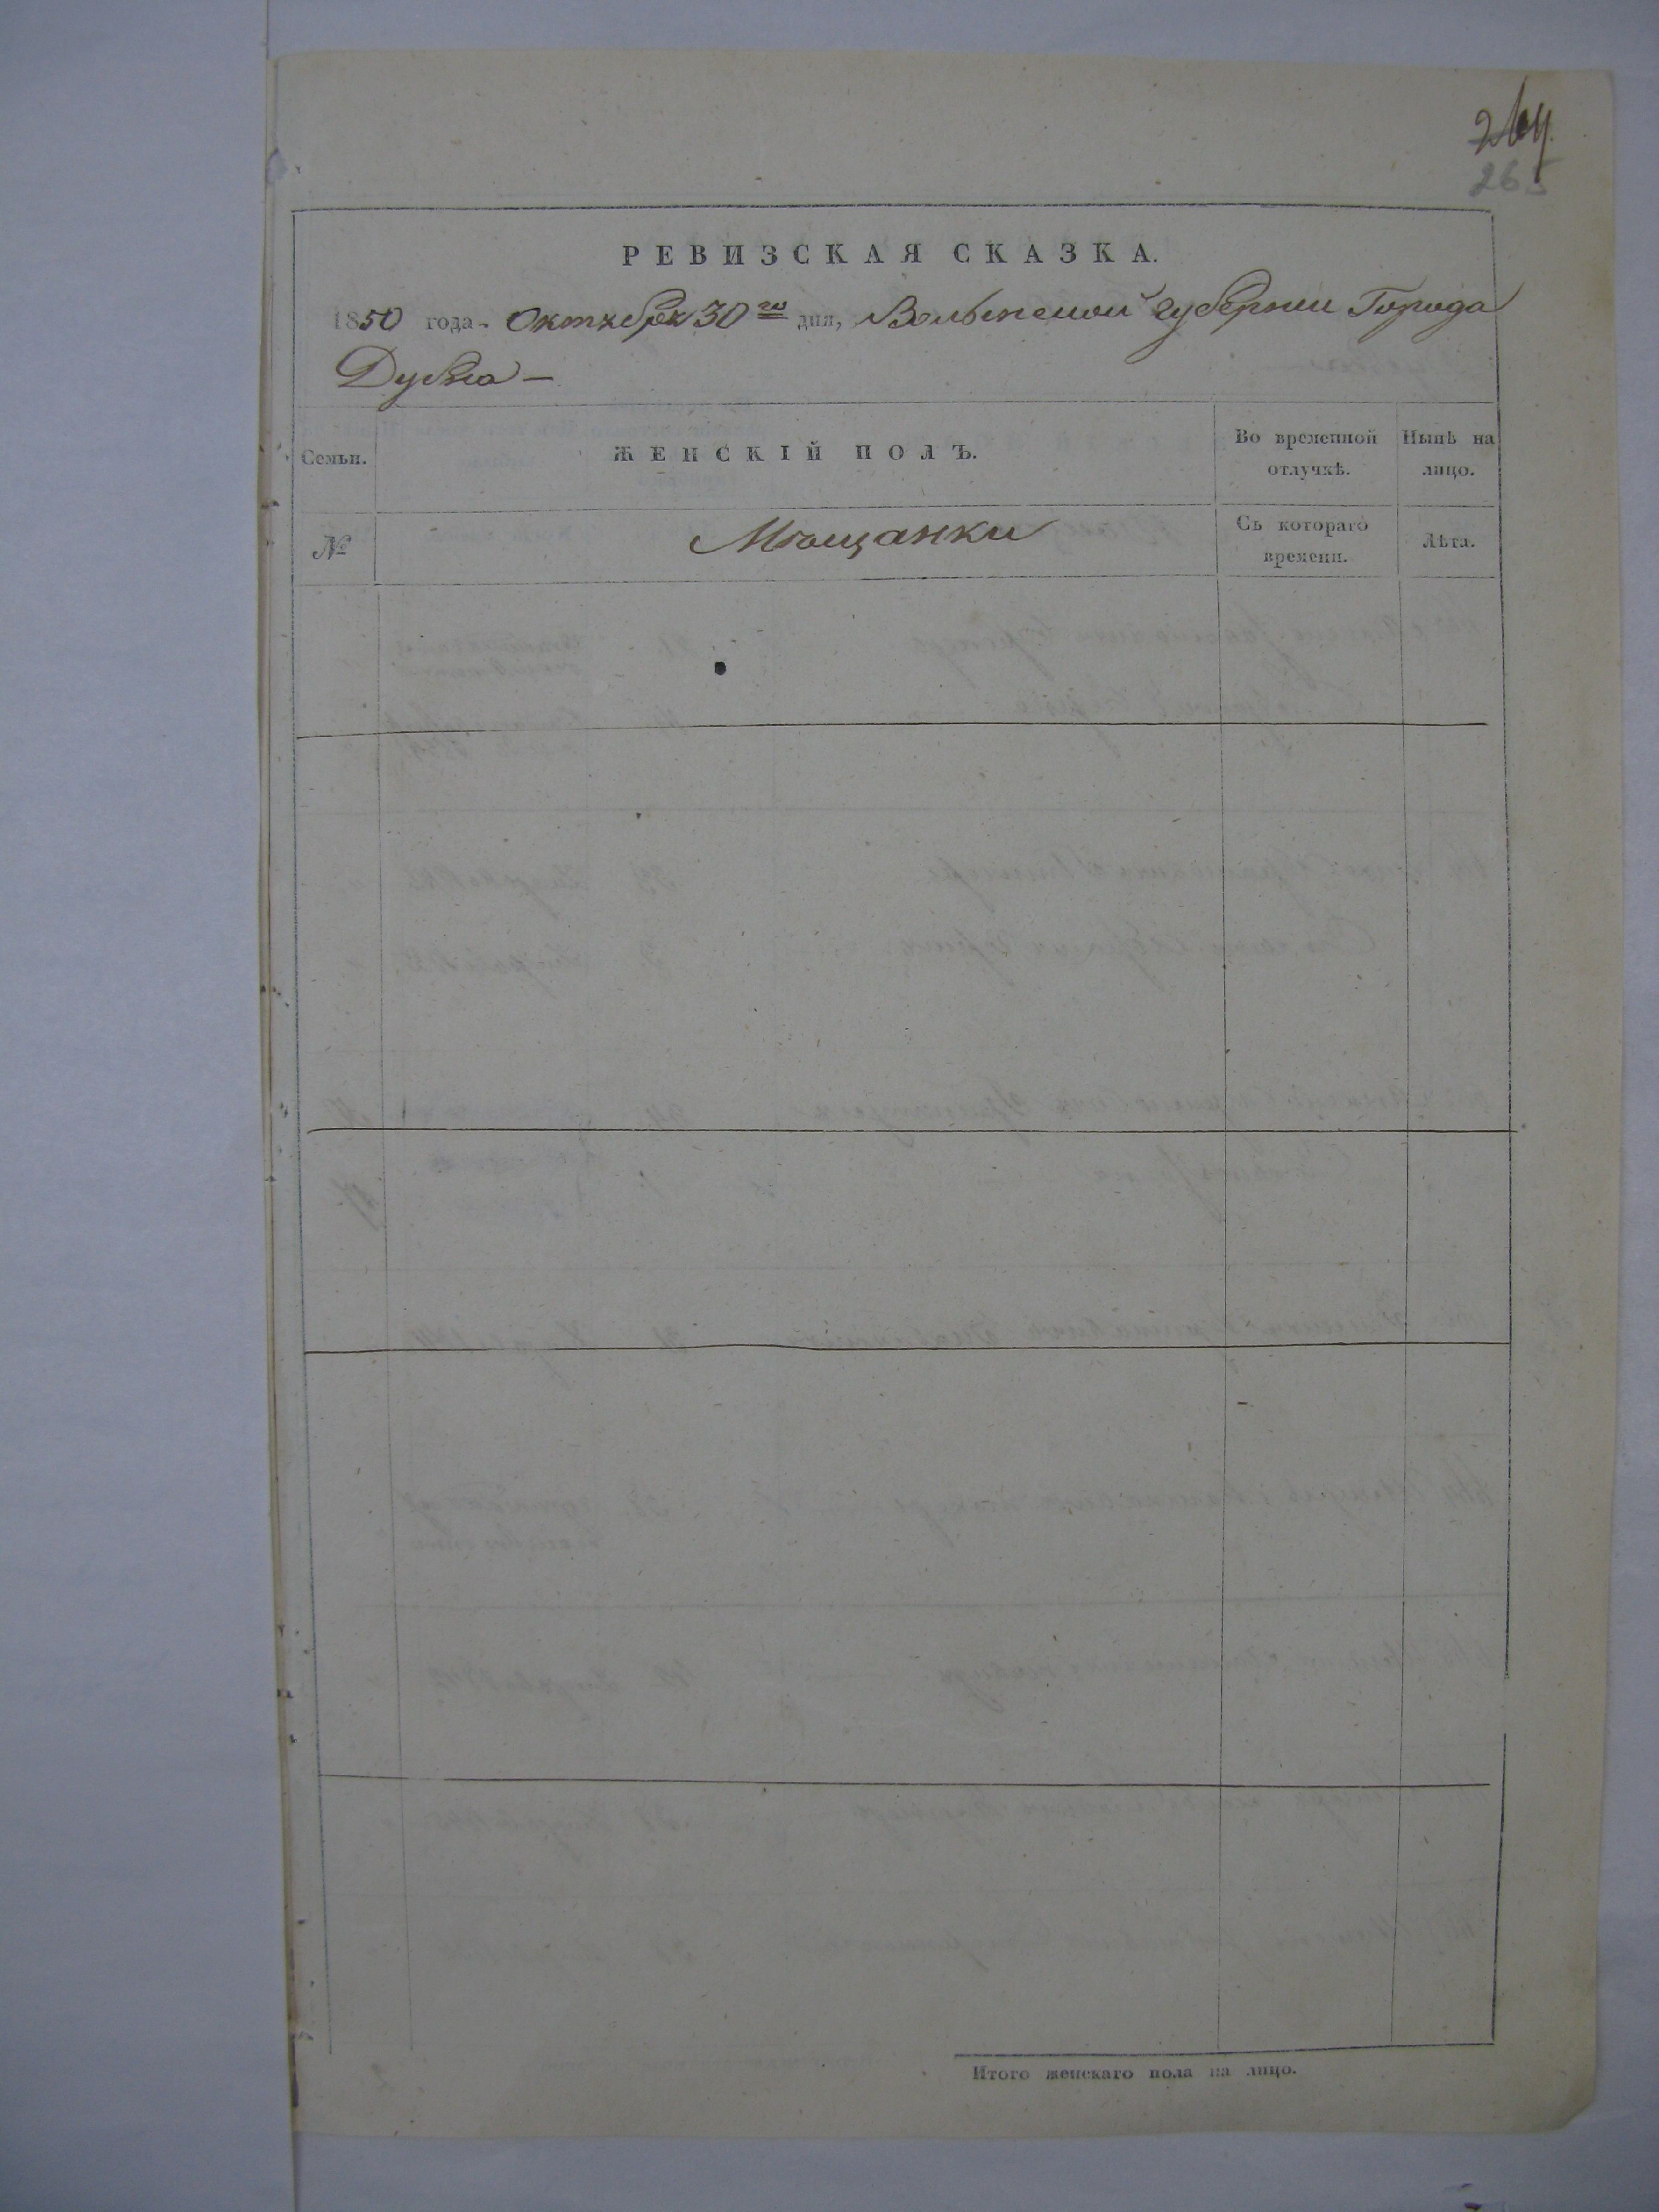 264
265
РЕВИЗСКАЯ СКАЗКА.
1850 года. Октября 30го дня, Волынской Губернии Города
Дубна —
Семьи.
ЖЕНСКІЙ ПОЛЪ.
Во временной отлучкѣ.
Нынѣ на лицо.
№
Мѣщанки
Съ котораго времени.
Лѣта.
Итого женскаго пола на лицо.